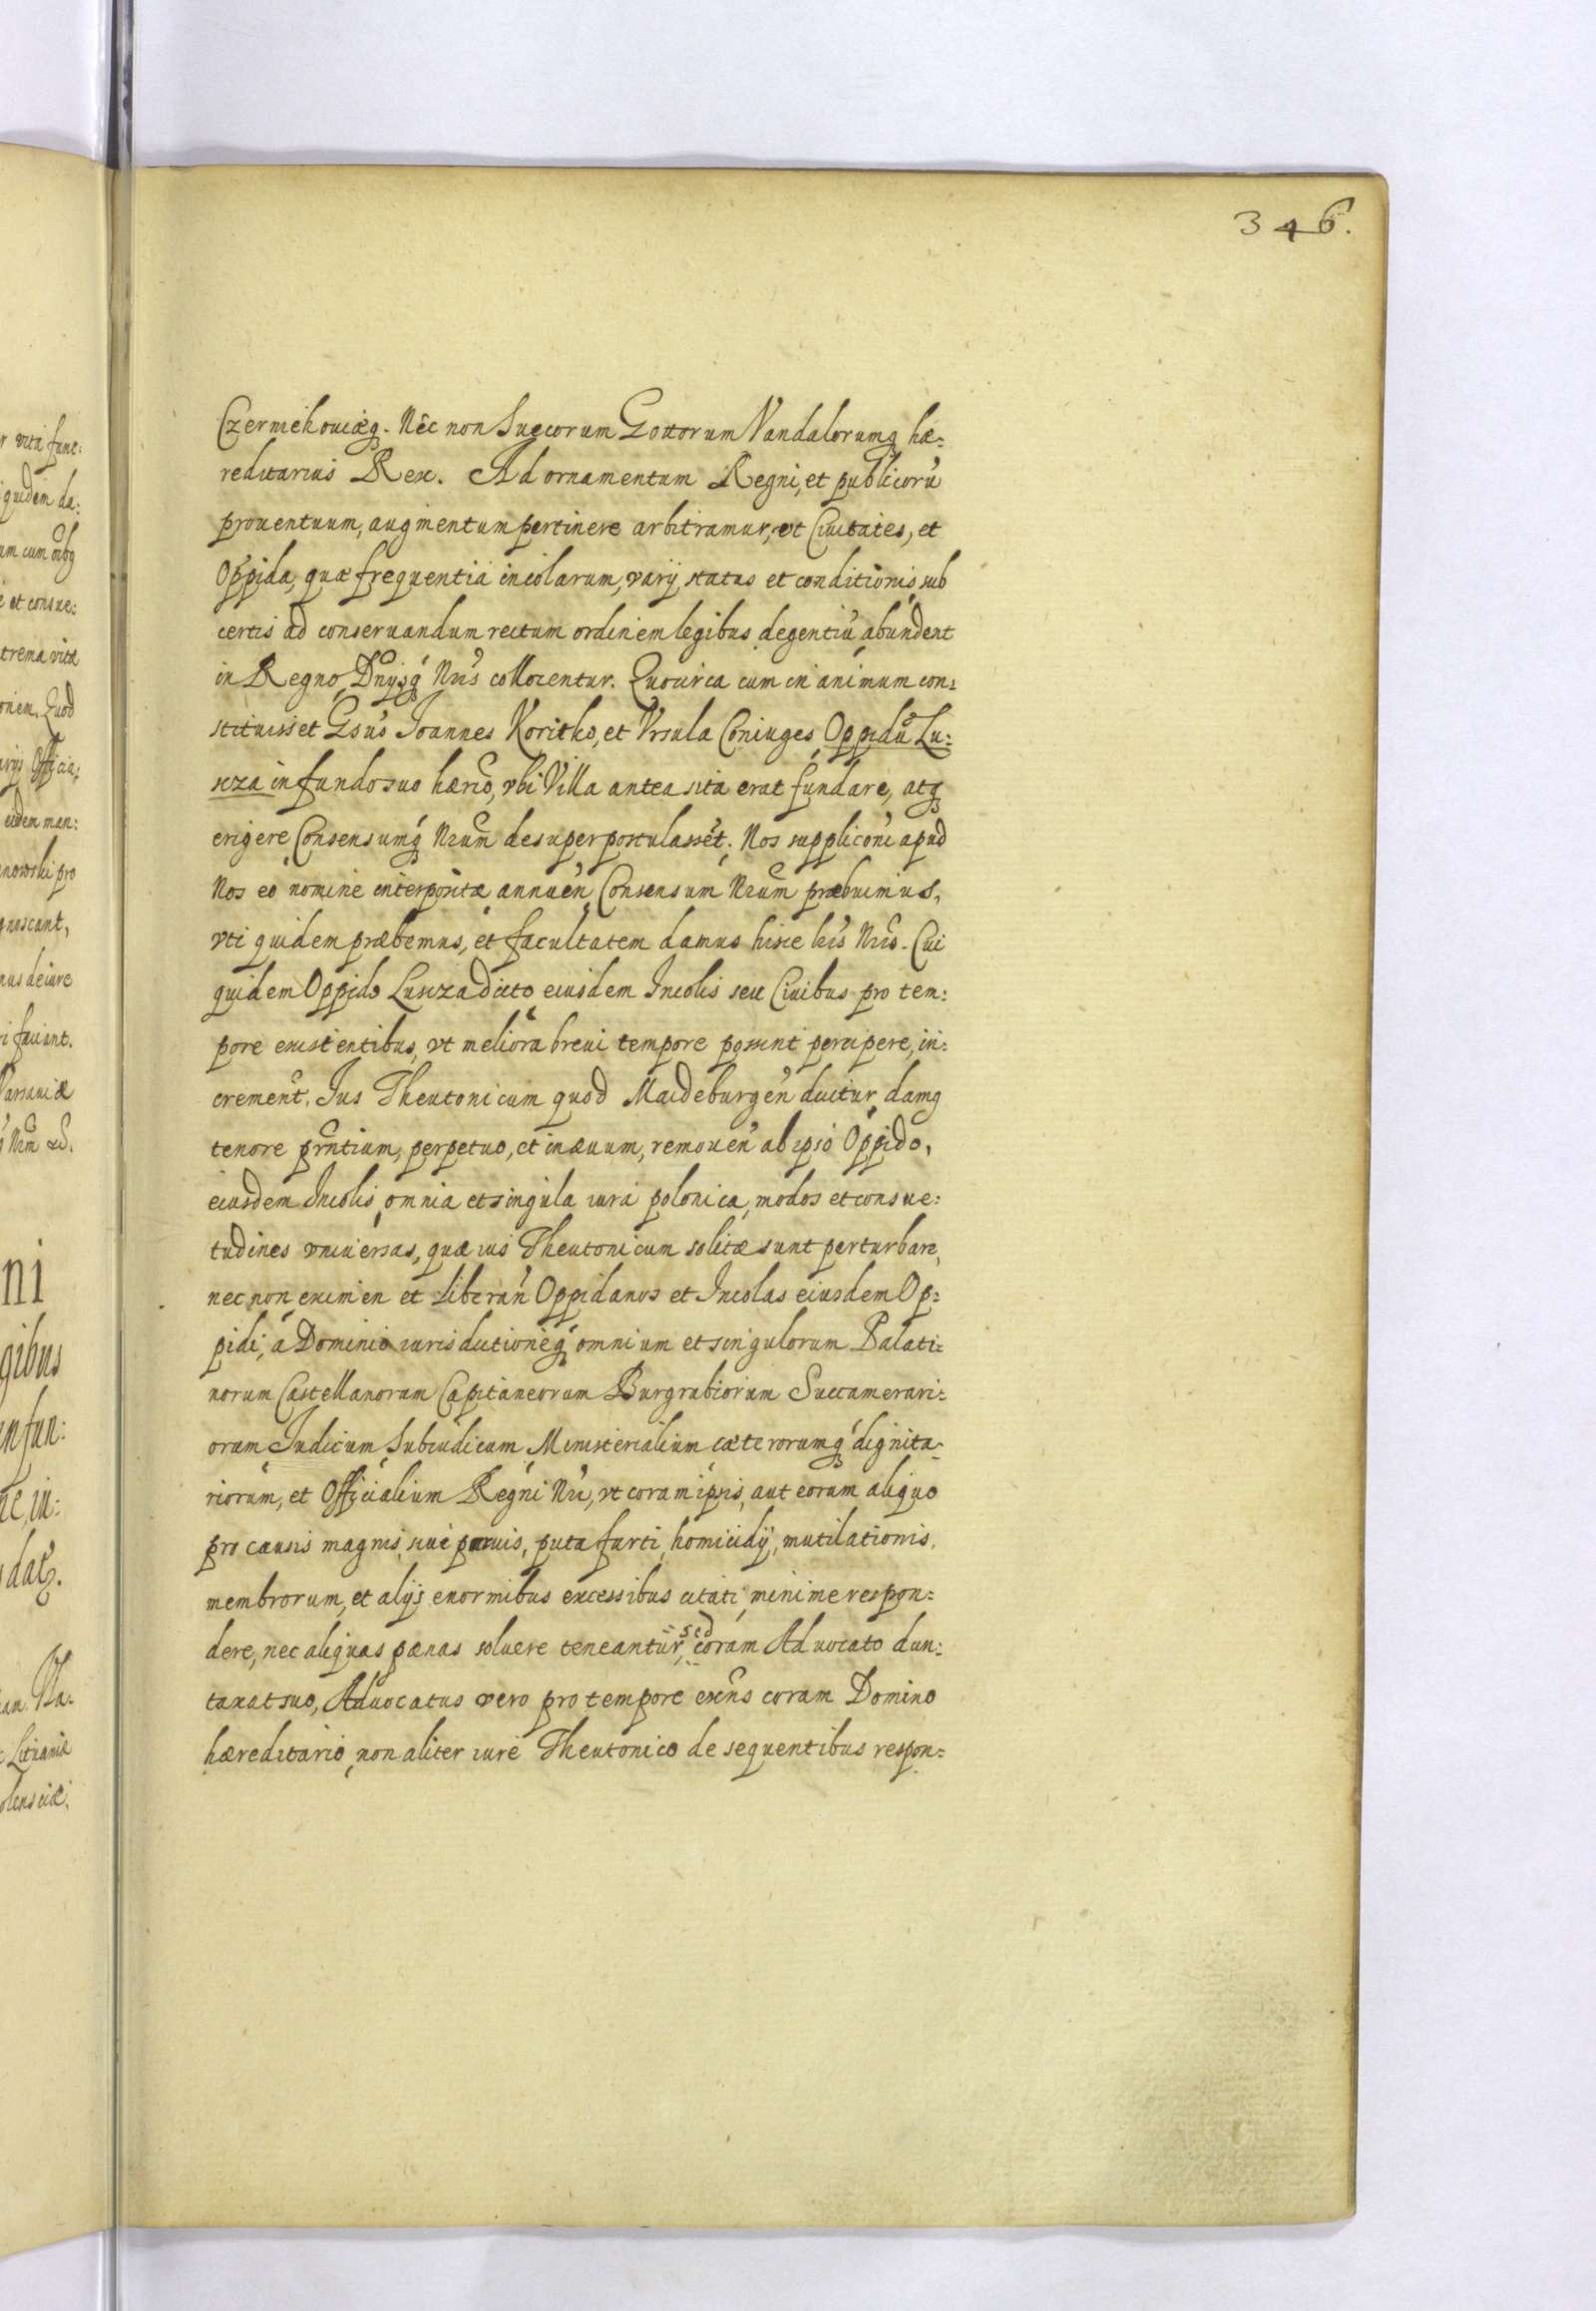 346.
Czerniehouiæq. Nec non Suecorum Gottorum Vandalorumq hæ:
reditarius Rex. Ad ornamentum Regni, et publicorũ
prouentuum, augmentum pertinere arbitramur, vt Ciuitates, et
Oppida, quæ frequentia incolarum, varij status et conditionis, sub
certis ad conseruandum rectum ordinem legibus degentiũ abundent
in Regno Dnijsq Nris collocentur. Quocirca cum in animum con:
stituisset Gsus Joannes Koritko, et Vrsula Coniuges, Oppidũ Lu:
scza in fundo suo hærio, vbi Villa antea sita erat fundare, atq
erigere Consensumq Nrum desuper postulasset. Nos supplicõni apud
Nos eo nomine interpositæ annuen, Consensum Nrum præbuimus,
vti quidem præbemus, et facultatem damus hisce lris Nris. Cui
quidem Oppido Luscza dicto, eiusdem Incolis seu Ciuibus pro tem:
pore existentibus, vt meliora breui tempore possint percipere, in:
crement. Jus Theutonicum quod Maideburgen dicitur, damq
tenore prntium, perpetuo, et in æuum, remouen ab ipso Oppido,
eiusdem Incolis, omnia et singula iura polonica, modos et consue:
tudines vniuersas, quæ ius Theutonicum solitæ sunt perturbare,
nec non eximen et liberan Oppidanos et Incolas eiusdem Op:
pidi, a Dominio iurisdictioneq omnium et singulorum Palati:
norum Castellanorum Capitaneorum Burgrabiorum Succamerari:
orum, Judicum, Subiudicum, Ministerialium cæterorumq dignita:
riorum, et Officialium Regni Nri, vt coram ipsis, aut eorum aliquo
pro causis magnis, siue paruis, puta furti, homicidij, mutilationis,
membrorum, et alijs enormibus excessibus citati, minime respon:
dere, nec aliquas pœnas soluere teneantur, sed coram Aduocato dun:
taxat suo, Aduocatus vero pro tempore exñs coram Domino
hæreditario, non aliter iure Theutonico de sequentibus respon: